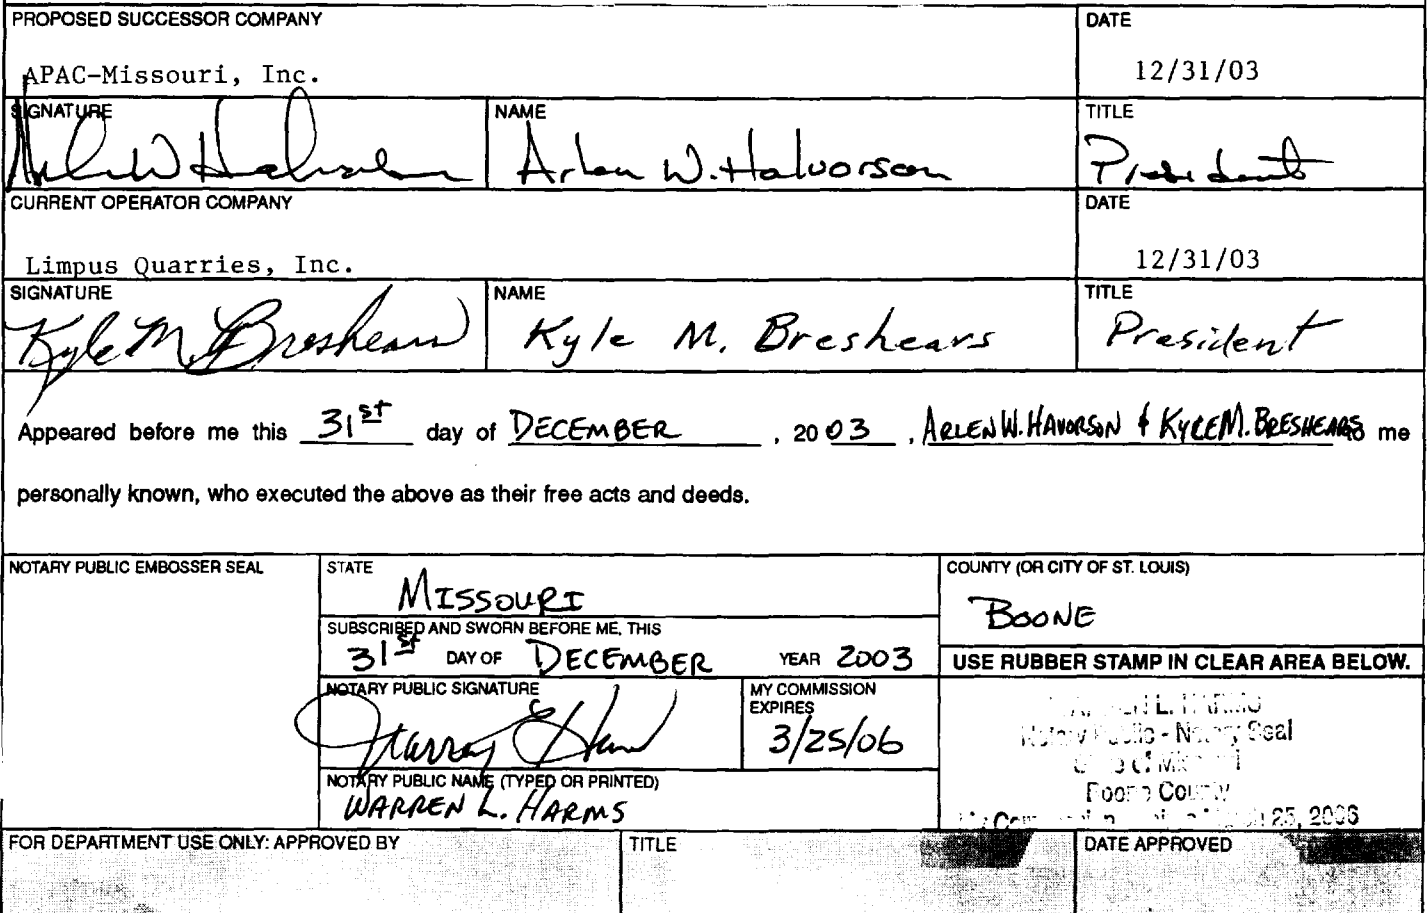 PROPOSED SUCCESSOR COMPANY DATE
APAC-Missouri, Inc. 12/31/03
SIGNATURE NAME TITLE
Arlen W. Halvorson Arlen W. Halvorson President
CURRENT OPERATOR COMPANY DATE
Limpus Quarries, Inc. 12/31/03
SIGNATURE NAME TITLE
Kyle M. Breshears Kyle M. Breshears President
Appeared before me this 31st day of DECEMBER , 2003 , ARLEN W. HAVORSON & KYLE M. BRESHEARS to me
personally known, who executed the above as their free acts and deeds.
NOTARY PUBLIC EMBOSSER SEAL STATE COUNTY (OR CITY OF ST. LOUIS)
MISSOURI BOONE
SUBSCRIBED AND SWORN BEFORE ME, THIS
31st DAY OF DECEMBER YEAR 2003 USE RUBBER STAMP IN CLEAR AREA BELOW.
NOTARY PUBLIC SIGNATURE MY COMMISSION
EXPIRES
3/25/06
NOTARY PUBLIC NAME (TYPED OR PRINTED)
WARREN L. HARMS
L. HARMS
Notary Public - Notary Seal
State of Missouri
Boone County
25, 2006
FOR DEPARTMENT USE ONLY: APPROVED BY TITLE DATE APPROVED